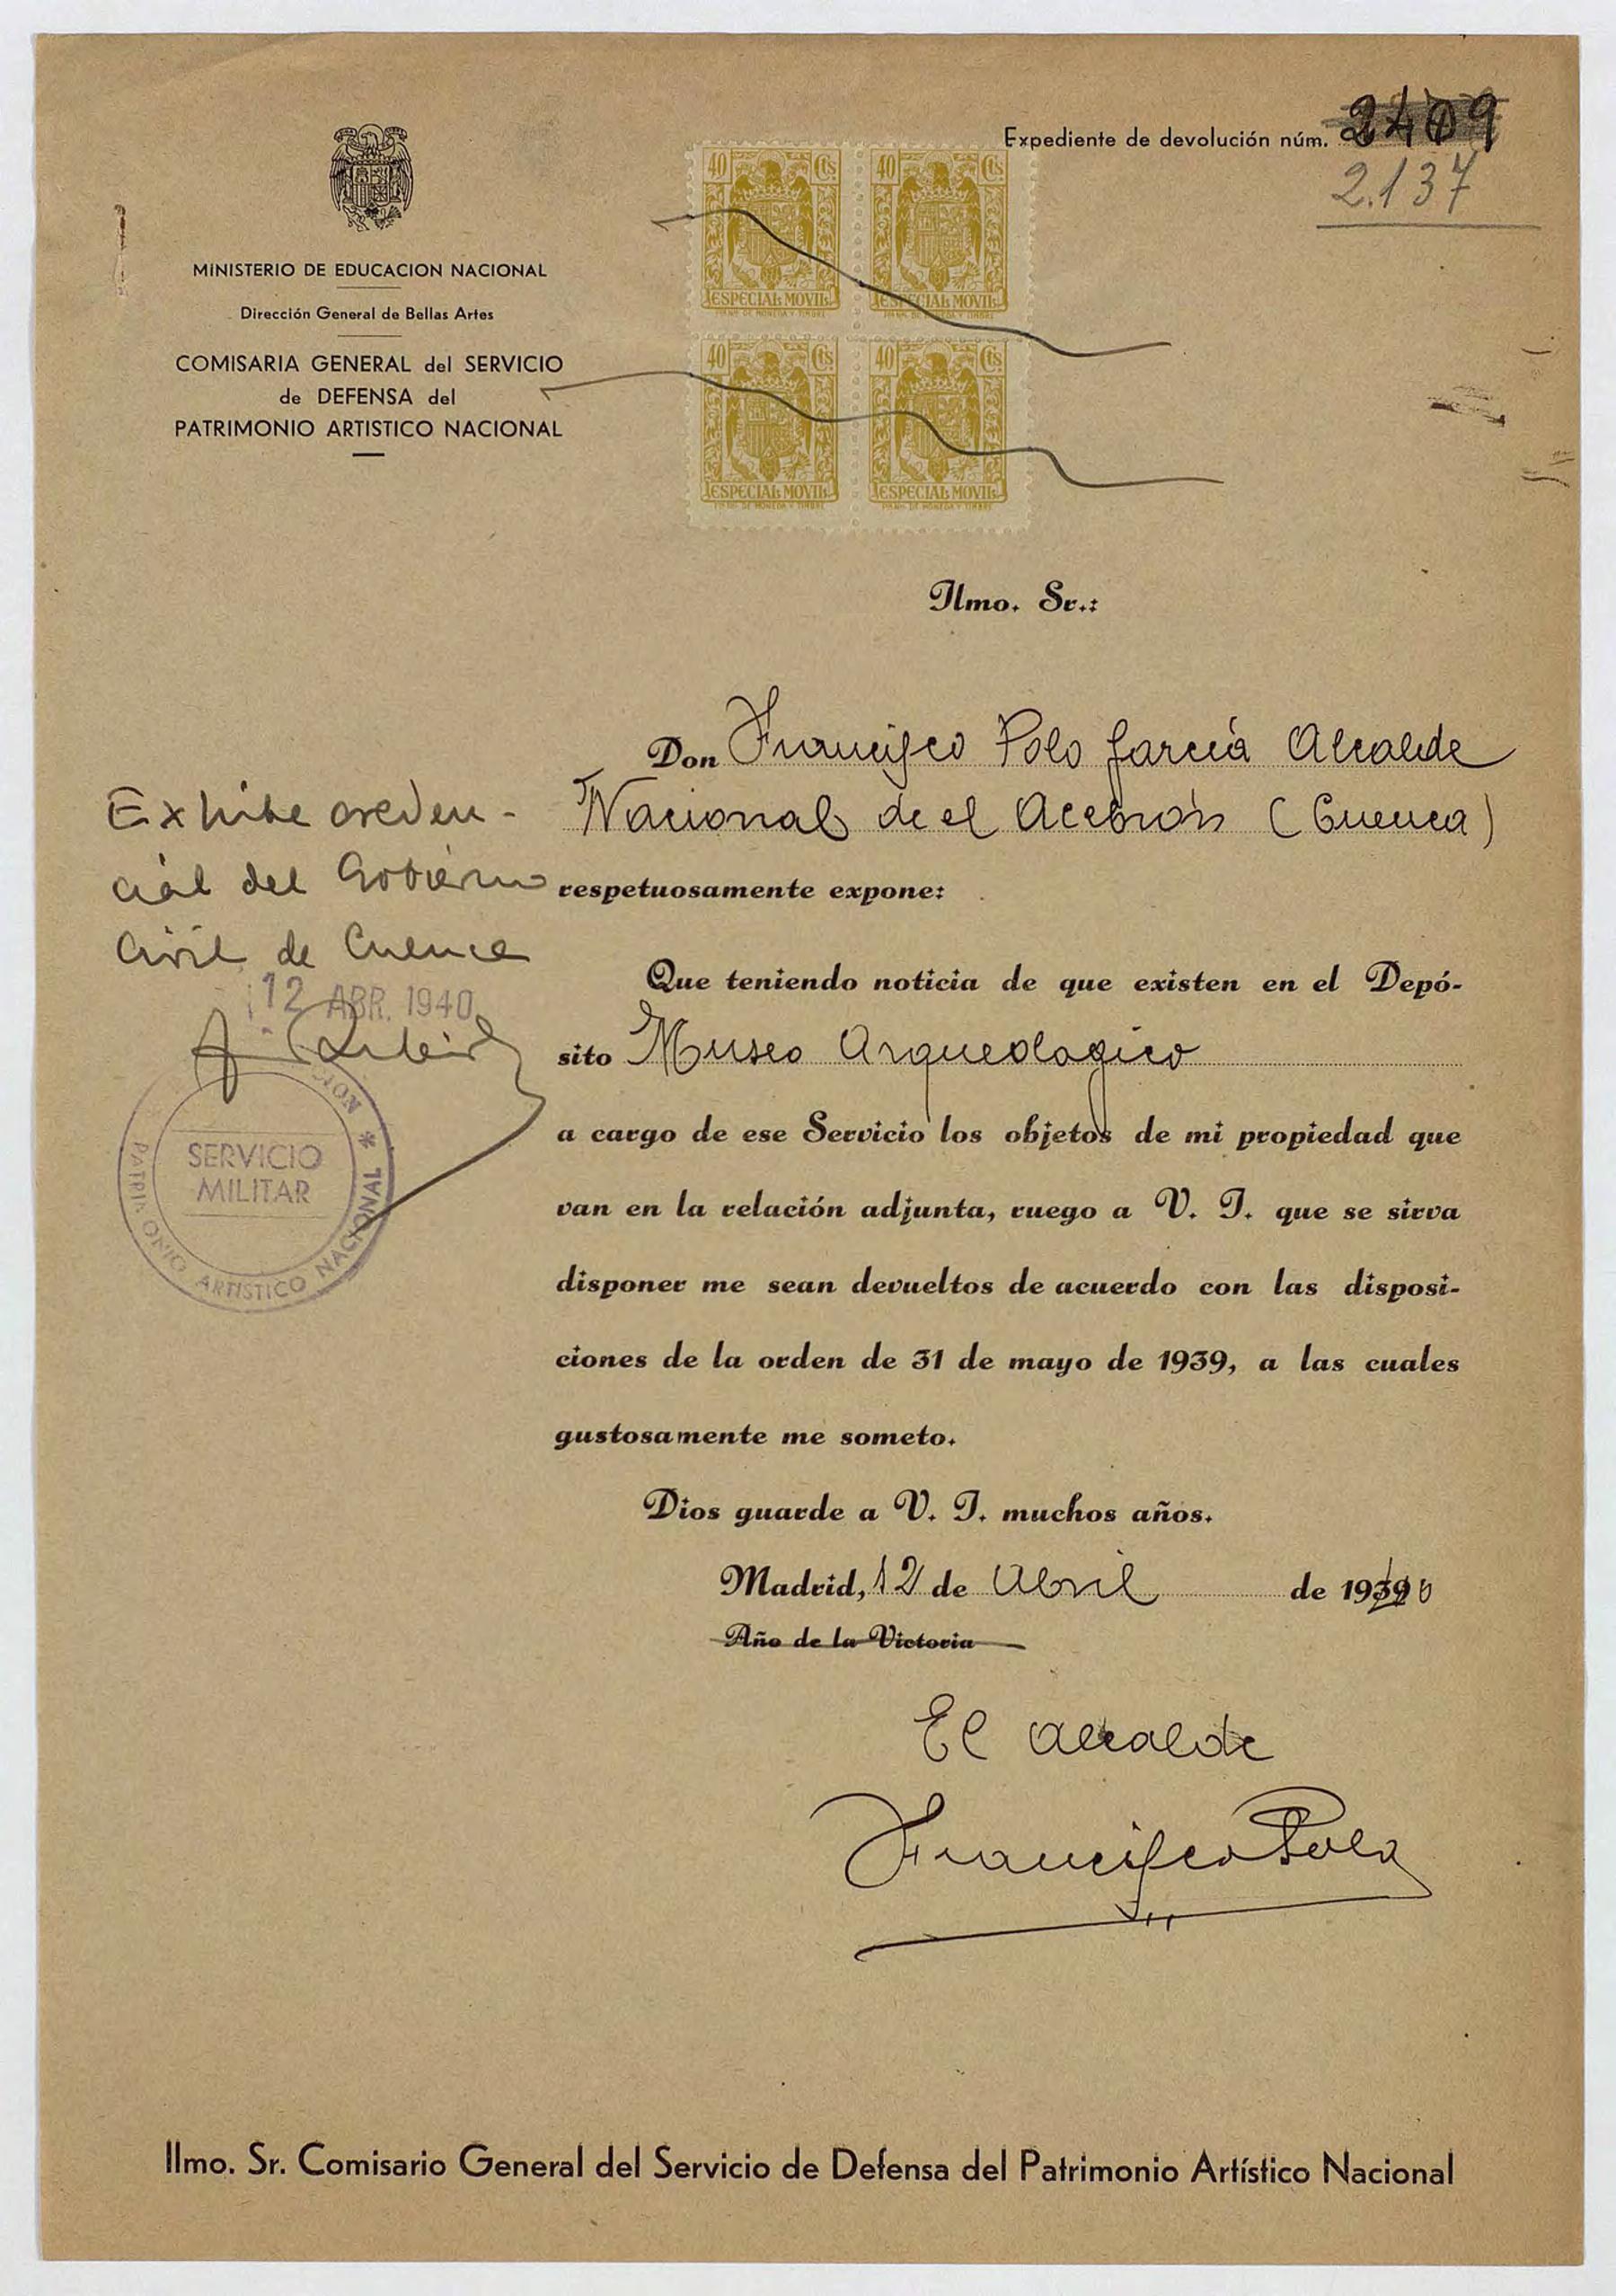 Expediente de devolución núm. 2409
2.137
MINISTERIO DE EDUCACION NACIONAL
Dirección General de Bellas Artes
COMISARIA GENERAL del SERVICIO
de DEFENSA del
PATRIMONIO ARTISTICO NACIONAL
40 Cts 40 Cts
ESPECIAL MOVIL ESPECIAL MOVIL
40 Cts 40 Cts
ESPECIAL MOVIL ESPECIAL MOVIL
Ilmo. Sr.:
Don Francisco Polo García Alcalde
Nacional de el Acebrón (Cuenca)
respetuosamente expone:
Exhibe creden-
cial del Gobierno
Civil de Cuenca
12 ABR. 1940
SERVICIO
MILITAR
PATRIMONIO ARTISTICO NACIONAL *
Que teniendo noticia de que existen en el Depó-
sito Museo Arqueologico
a cargo de ese Servicio los objetos de mi propiedad que
van en la relación adjunta, ruego a V. I. que se sirva
disponer me sean devueltos de acuerdo con las disposi-
ciones de la orden de 31 de mayo de 1939, a las cuales
gustosamente me someto.
Dios guarde a V. I. muchos años.
Madrid, 12 de Abril de 1940
Año de la Victoria
El alcalde
Francisco Polo
Ilmo. Sr. Comisario General del Servicio de Defensa del Patrimonio Artístico Nacional